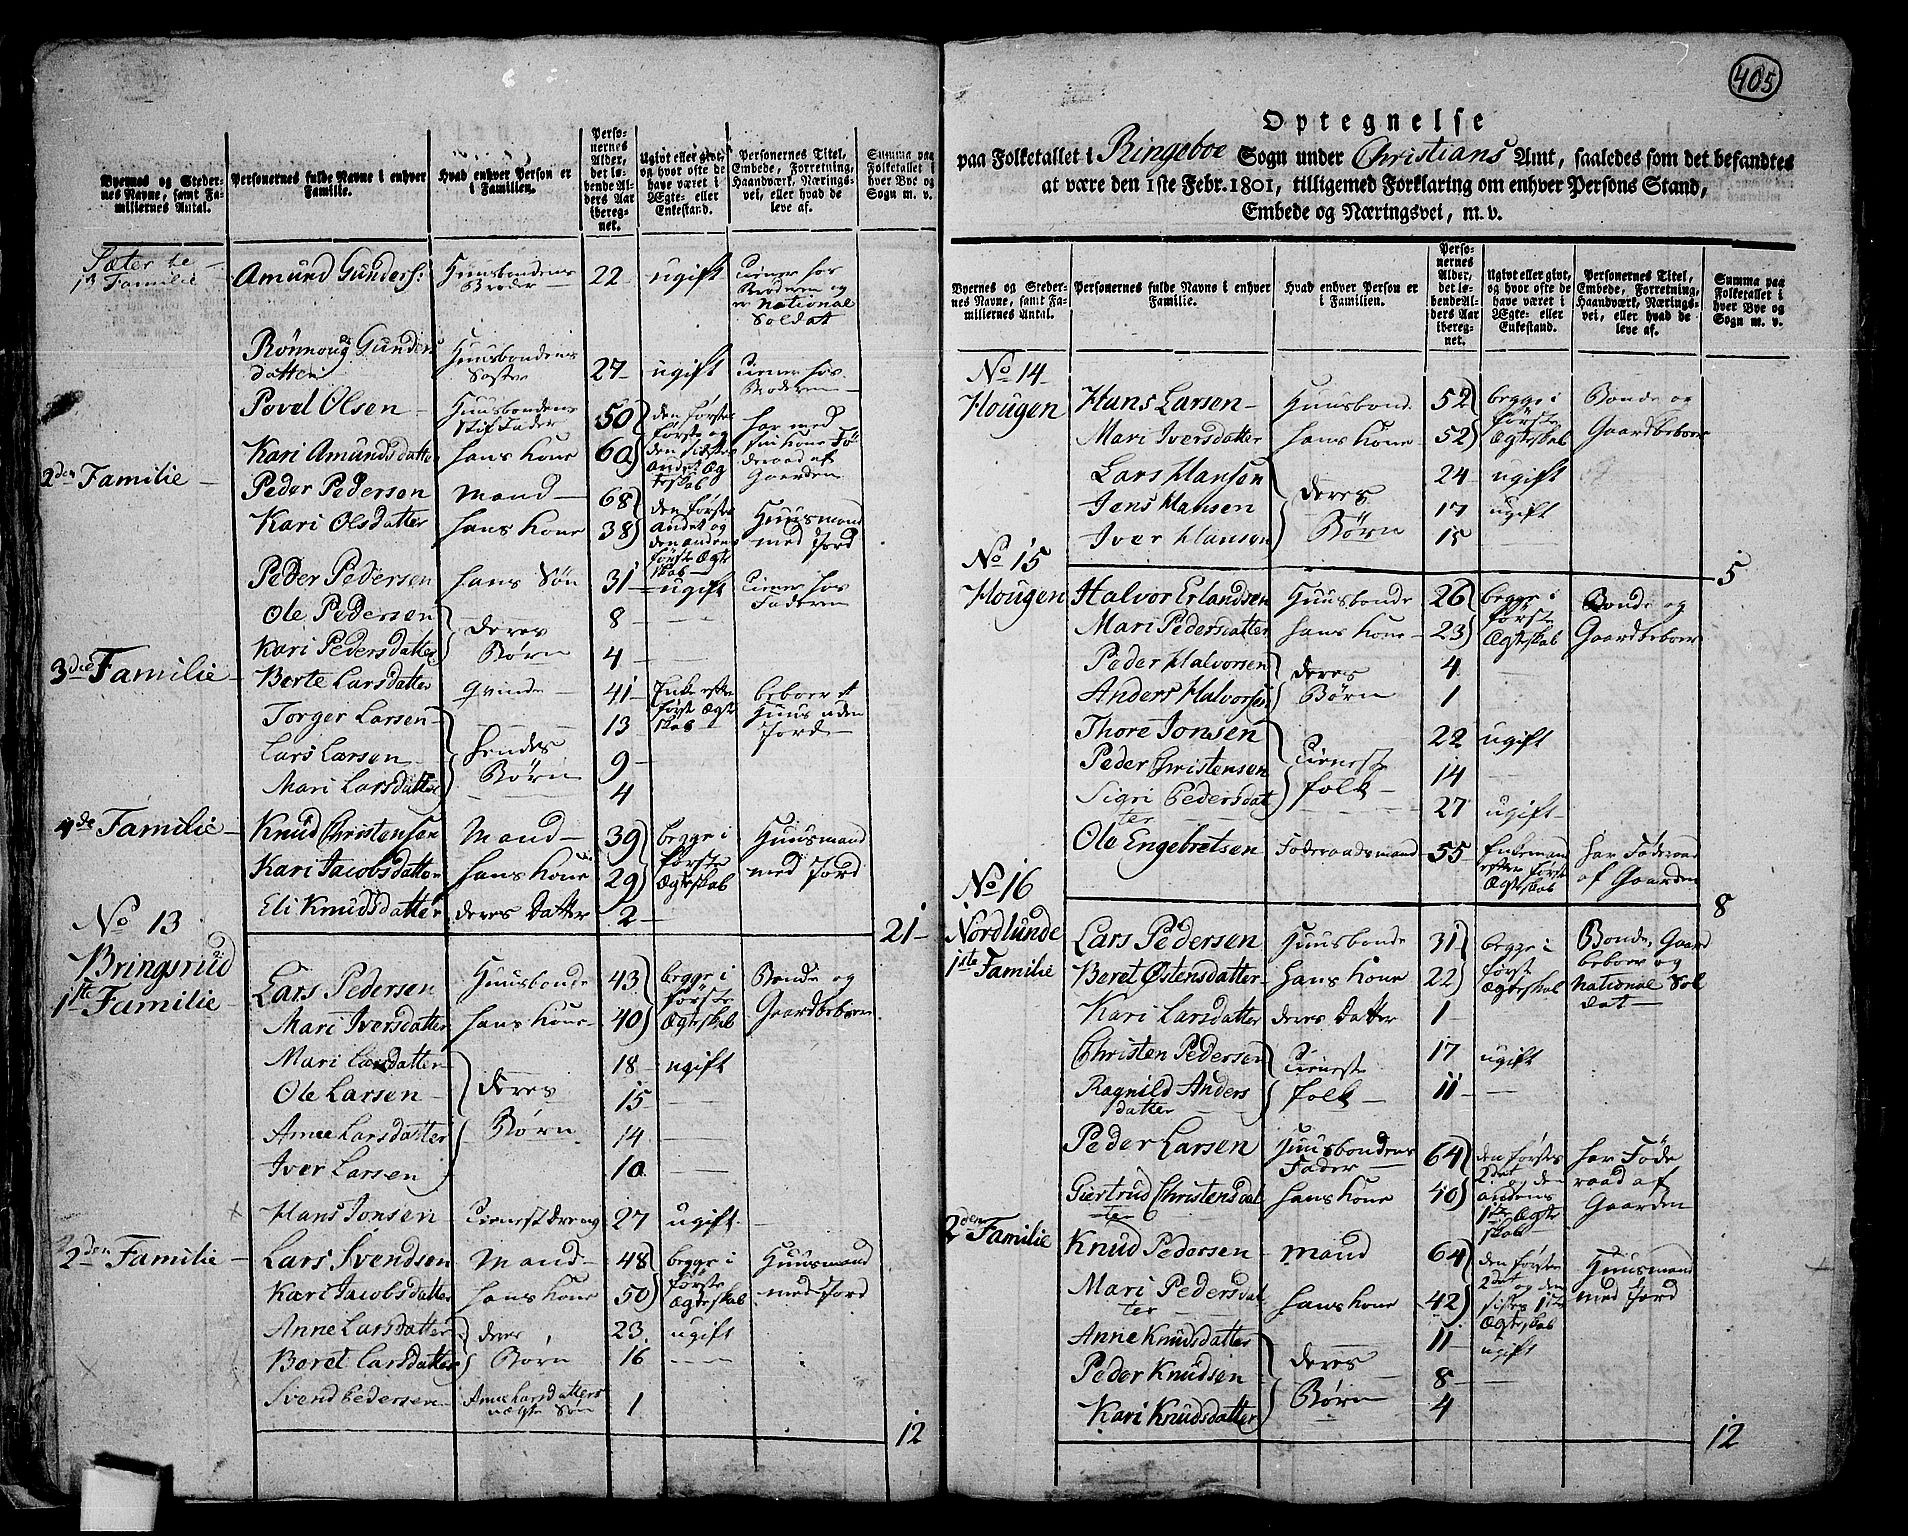 Byernes og Steder-
nes Navne, samt Fa-
miliernes Antal.
Personernes fulde Navne i enhver
Familie.
Hvad enhver Person er
i Familien.
Perso-
nernes
Alder,
det lø-
bende Al-
ders Aar
iberegg-
net.
Ugivt eller givt,
og hvor ofte de
have været i
Ægte- eller
Enkestand.
Personernes Titel,
Embede, Forretning,
Haandværk, Nærings-
vei, eller hvad de
leve af.
Summa paa
Folketallet i
hver Bye og
Sogn m. v.
1ste Familie
Amund Gunders: Huusbondens Broder 22 ugift tiener hos Broderen og er National Soldat
Rønnoug Gundersdatter Huusbondens Søster 27 ugift tiener hos Broderen
Povel Olsen Huusbondens Stiffader 50 den første første og
Kari Amundsdatter hans Kone 60 den sidste andet Ægteskab har med sin Kone Føderaad af Gaarden
2den Familie
Peder Pedersen Mand 68 den første andet og
Kari Olsdatter hans Kone 38 den anden første Ægteskab Huusmand med Jord
Peder Pedersen hans Søn 31 ugift tiener hos Faderen
Ole Pedersen 8
Kari Pedersdatter deres Børn 4
3die Familie
Berte Larsdatter Qvinde 41 Enke efter første Ægteskab beboer et Huus uden Jord
Torger Larsen 13
Lars Larsen hendes Børn 9
Mari Larsdatter 4
4de Familie
Knud Christensen Mand 39 begge i første Ægteskab Huusmand med Jord
Kari Jacobsdatter hans Kone 29
Eli Knudsdatter deres Datter 2
21
No 13
Bringsrud
1ste Familie
Lars Pedersen Huusbonde 43 begge i første Ægteskab Bonde og Gaardbeboer
Mari Iversdatter hans Kone 40
Mari Larsdatter 18 ugift
Ole Larsen deres Børn 15
Anne Larsdatter 14
Iver Larsen 10
Hans Jonsen Tienestdreng 27 ugift
2den Familie
Lars Svendsen Mand 48 begge i første Ægteskab Huusmand med Jord
Kari Jacobsdatter hans Kone 50
Anne Larsdatter deres Børn 23 ugift
Beret Larsdatter 16
Svend Pedersen Anne Larsdatters uægte Søn 1
12
405
Optegnelse
paa Folketallet i Ringeboe Sogn under Christians Amt, saaledes som det befandtes
at være den 1ste Febr. 1801, tilligemed Forklaring om enhver Persons Stand,
Embede og Næringsvei, m. v.
Byernes og Steder-
nes Navne, samt Fa-
miliernes Antal.
Personernes fulde Navne i enhver
Familie.
Hvad enhver Person er
i Familien.
Perso-
nernes
Alder,
det lø-
bende Al-
ders Aar
ibereg-
net.
Ugivt eller givt,
og hvor ofte de
have været i
Ægte- eller
Enkestand.
Personernes Titel,
Embede, Forretning,
Haandværk, Nærings-
vei, eller hvad de
leve af.
Summa paa
Folketallet i
hver Bye og
Sogn m. v.
No 14
Hougen
Hans Larsen Huusbond 52 begge i første Ægteskab Bonde og Gaardbeboer
Mari Iversdatter hans Kone 52
Lars Hansen 24 ugift
Jens Hansen deres Børn 17 ugift
Iver Hansen 15
5
No 15
Hougen
Halvor Erlandsen Huusbonde 26 begge i første Ægteskab Bonde og Gaardbeboer
Mari Pedersdatter hans Kone 23
Peder Halvorsen deres Børn 4
Anders Halvorsen 1
Thore Jonsen 22 ugift
Peder Christensen Tieneste folk 14
Sigri Pedersdatter 27 ugift
Ole Engebretsen Føderaadsmand 55 Enkemand efter første Ægteskab har Føderaad af Gaarden
8
No 16
Nordlunde
1ste Familie
Lars Pedersen Huusbonde 31 begge i første Ægteskab Bonde, Gaardbeboer og National Soldat
Beret Østensdatter hans Kone 22
Kari Larsdatter deres Datter 1
Christen Pedersen Tieneste folk 17 ugift
Ragnild Andersdatter 11
Peder Larsen Huusbondens Fader 64 den førstes 2det og den andens 1ste Ægteskab har Føderaad af Gaarden
Giertrud Christensdatter hans Kone 40
2den Familie
Knud Pedersen Mand 64 den første 2det og den sidstes 1ste Ægteskab Huusmand med Jord
Mari Pedersdatter hans Kone 42
Anne Knudsdatter 11 ugift
Peder Knudsen deres Børn 8
Kari Knudsdatter 4
12